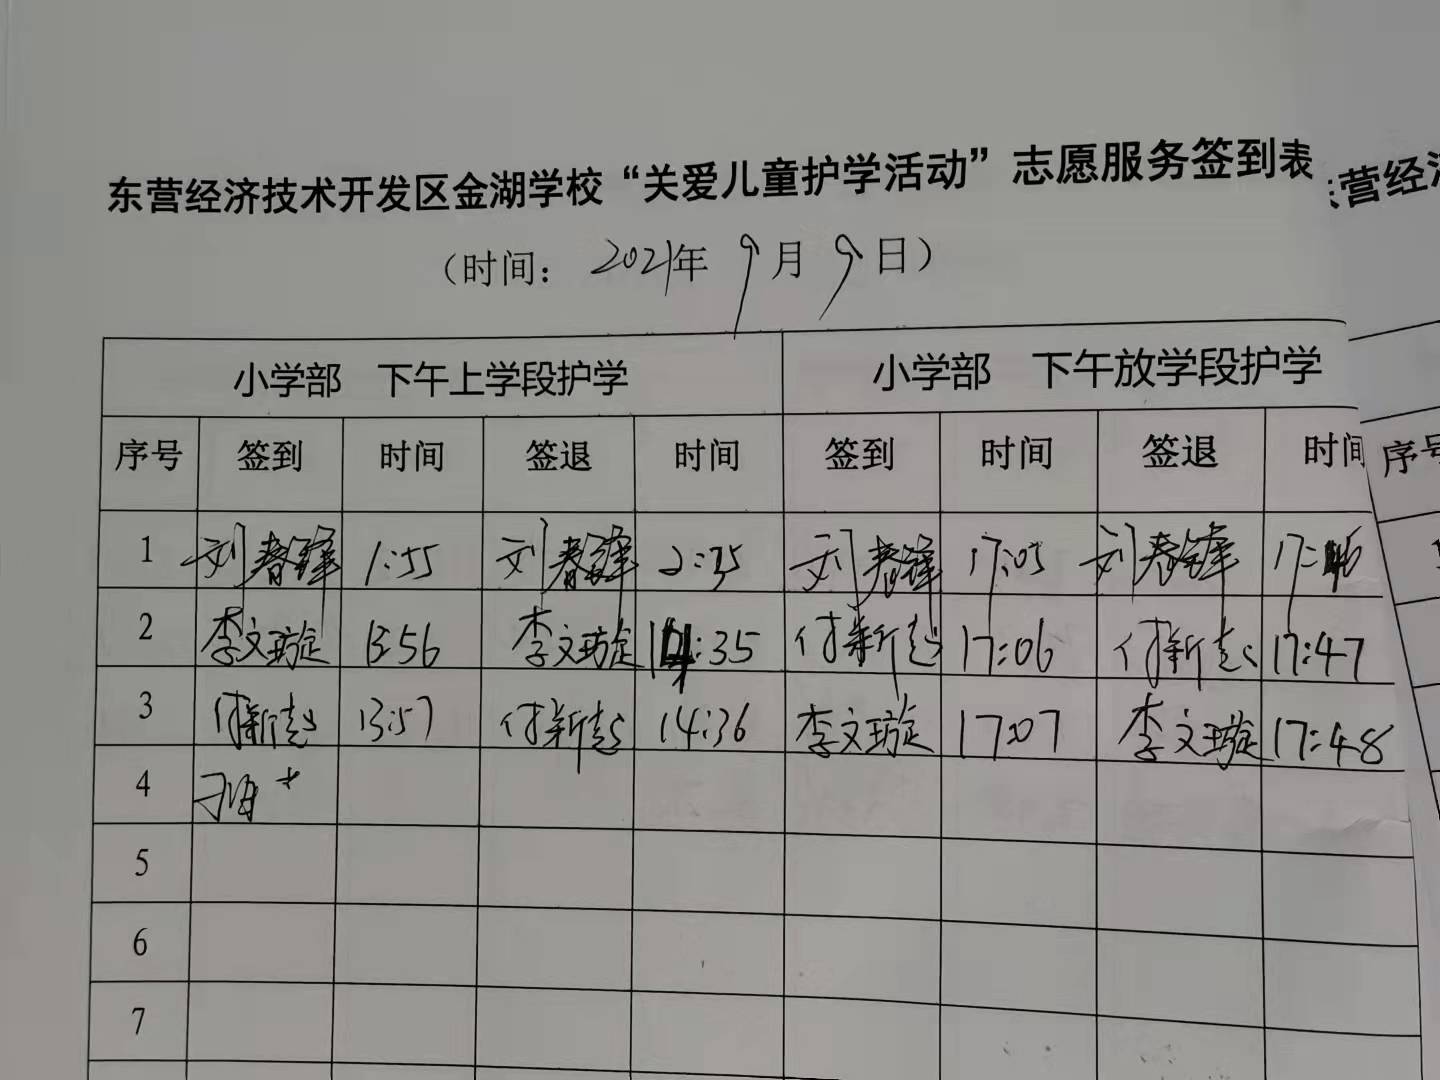 东营经济技术开发区金湖学校“关爱儿童护学活动”志愿服务签到表
（时间：2021年9月9日）
小学部 下午上学段护学 小学部 下午放学段护学
序号 签到 时间 签退 时间 签到 时间 签退 时间
1 刘春锋 1:55 刘春锋 2:35 刘春锋 17:05 刘春锋 17:46
2 李文璇 13:56 李文璇 14:35 付新起 17:06 付新起 17:47
3 付新起 13:57 付新起 14:36 李文璇 17:07 李文璇 17:48
4
5
6
7
营经济
序号